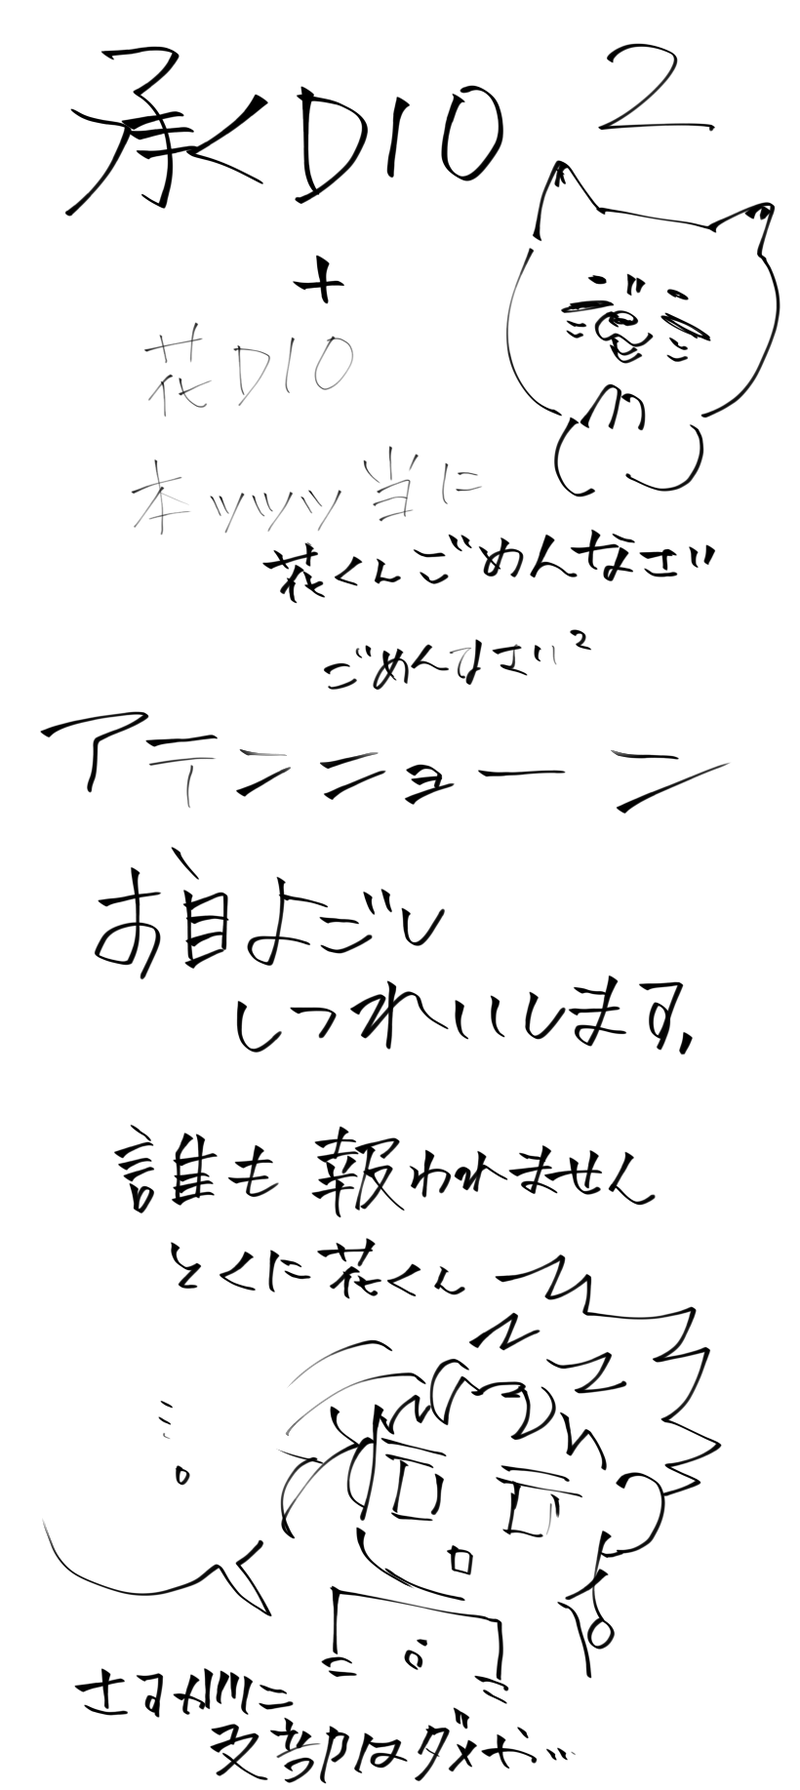 承くDIO 2
+
花DIO
本ッッッ当に
花くんごめんなさい
ごめんなさい²
アテンショーン
お目よごし
しつれいします。
誰も報われません
とくに花くん
…。
さすがに
文部はダメや…